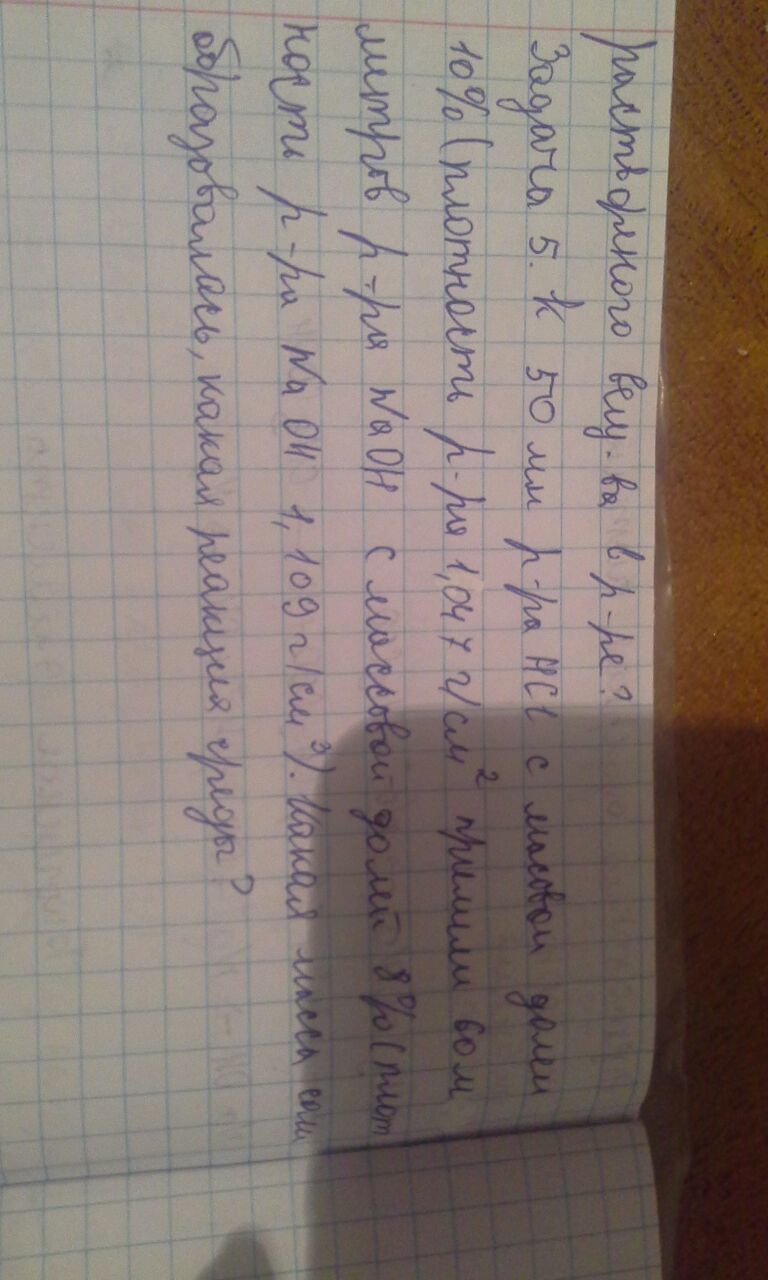 растворяного вещ-ва в р-ре?
Задача 5. К 50 мл р-ра HCl с масовой долей
10% (плотность р-ра 1,047 г/см² прилили 60 м
метров р-ра NaOH с массовой долей 8% (плот
ность р-ра NaOH 1,109 г/см³). Какая масса соли
образовалась, какая реакция среды?